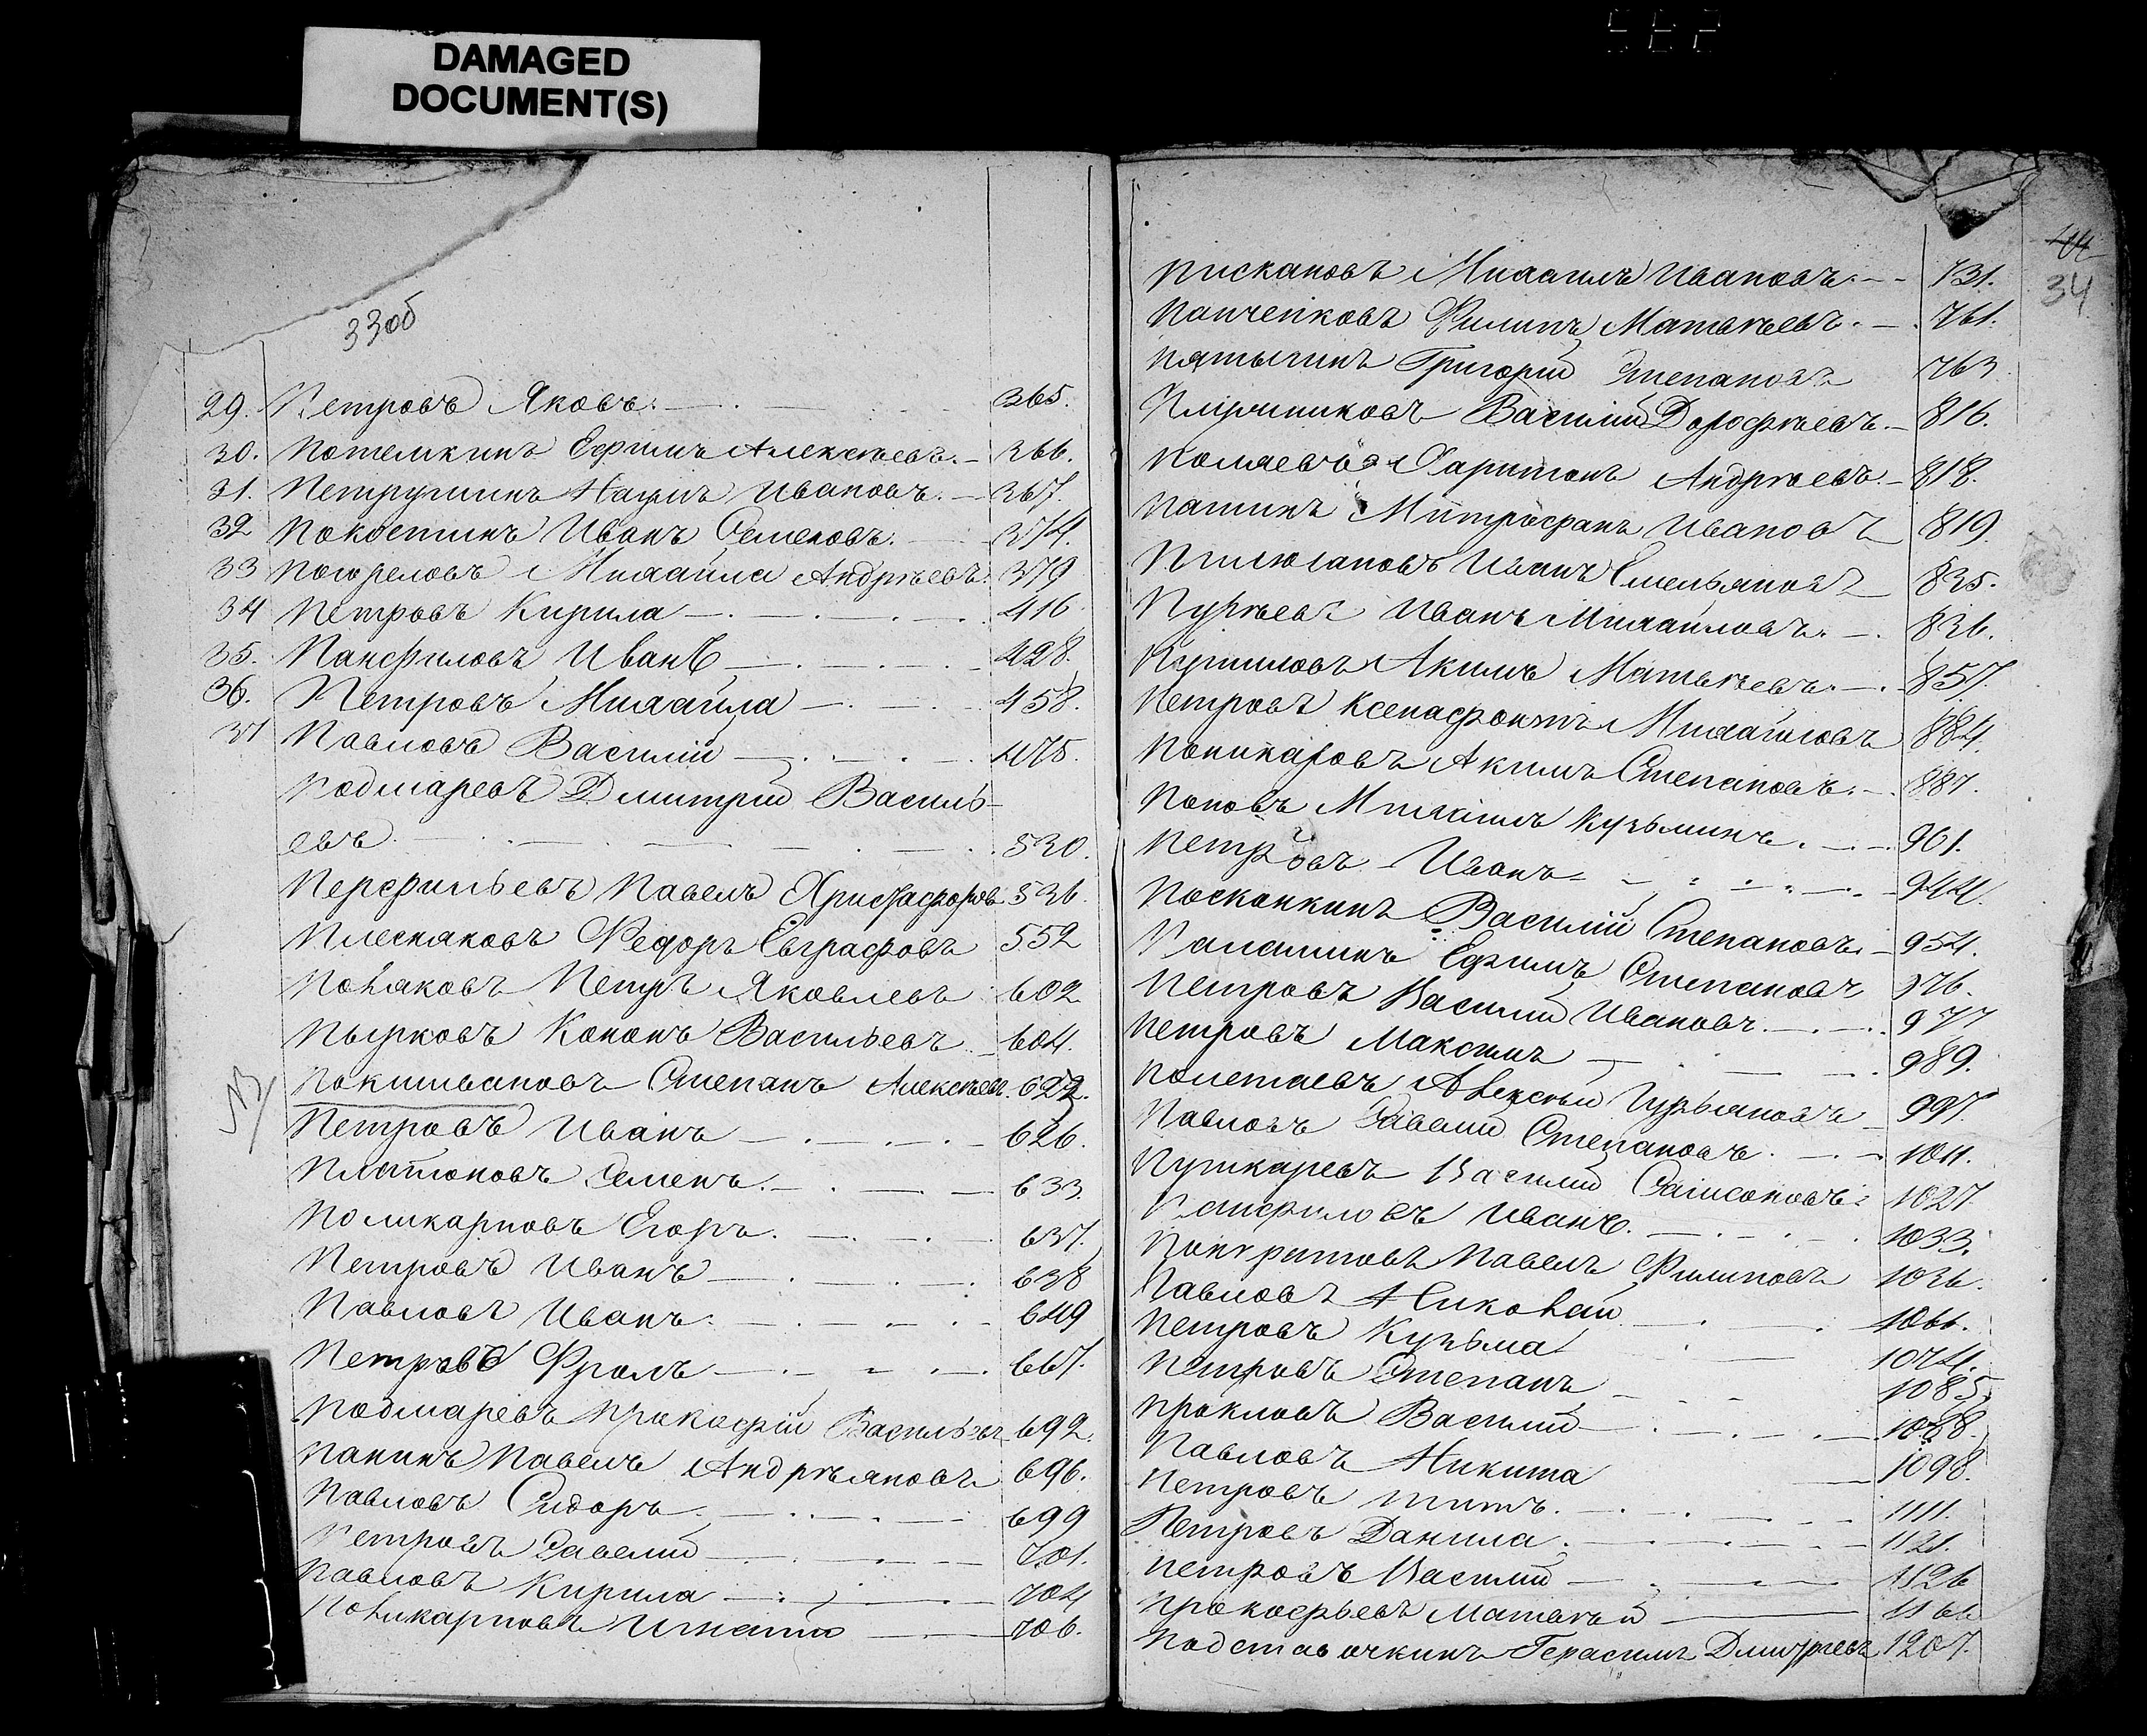 DAMAGED
DOCUMENT(S)
33об
29. Петровъ Яковъ. 365.
30. Потемкинъ Ефимъ Алексѣевъ. 366.
31. Петрушинъ Наумъ Ивановъ. 367.
32 Покостинъ Иванъ Семеновъ. 374.
33 Погореловъ Михайла Андрѣевъ. 379
34 Петровъ Кирила 416.
35. Панфиловъ Иванъ 428.
36. Петровъ Михайла 458.
37 Павловъ Василій 475.
Подмаревъ Дмитрій Василь-
евъ. 530.
Перфильевъ Павелъ Христофоровъ 536.
Плесняковъ Федоръ Евграфовъ 552
Поляковъ Петръ Яковлевъ 602
Пырковъ Кононъ Васильевъ 604.
Степанъ Алексѣевъ. 622.
Петровъ Иванъ 626.
Платоновъ Семенъ. 633.
Поликарповъ Егоръ. 637.
Петровъ Иванъ 638
Павловъ Иванъ. 649
Петровъ Фролъ 667.
Подмаревъ Прокофій Васильевъ 692.
Панинъ Павелъ Андрѣяновъ 696.
Павловъ Сидоръ. 699
Петровъ Савелій 701.
Павловъ Кирила 704
Поликарповъ Игнатій 706.
44
34
Пискановъ Михаилъ Ивановъ. 731.
Панченковъ Филипъ Матвѣевъ. 761.
Григорій Степановъ 763
Василій Дорофѣевъ. 816.
Харитонъ Андрѣевъ. 818.
Пашинъ Митрофанъ Ивановъ 819.
Иванъ Емельяновъ 835.
Пурѣевъ Иванъ Михайловъ. 836.
Акимъ Матвѣевъ. 857.
Петровъ Ксенофонтъ Михайловъ 884.
Поликарповъ Акимъ Степановъ. 887.
Поповъ Михаилъ Кузьминъ. 901.
Петровъ Иванъ 944.
Василій Степановъ. 954.
Ефимъ Степановъ 976.
Петровъ Василій Ивановъ. 977
Петровъ Максимъ 989.
Полетаевъ Алексѣй Гурьяновъ 997.
Павловъ Савелій Степановъ. 1011.
Пушкаревъ Василій Самсоновъ 1027.
Панфиловъ Иванъ. 1033.
Панкратовъ Павелъ Филиповъ 1036.
Павловъ Николай 1066.
Петровъ Кузьма 1074.
Петровъ Степанъ 1085.
Прокловъ Василій 1088.
Павловъ Никита 1098.
Петровъ Титъ. 1111.
Петровъ Данила. 1121.
Петровъ Василій 1126
Прокофьевъ Матвѣй 1166
Подставочкинъ Герасимъ Дмитріевъ 1207.